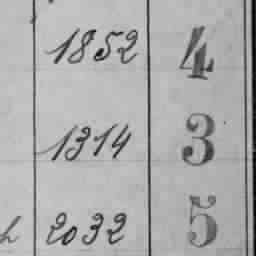 1852 4
1314 3
h 2032 5